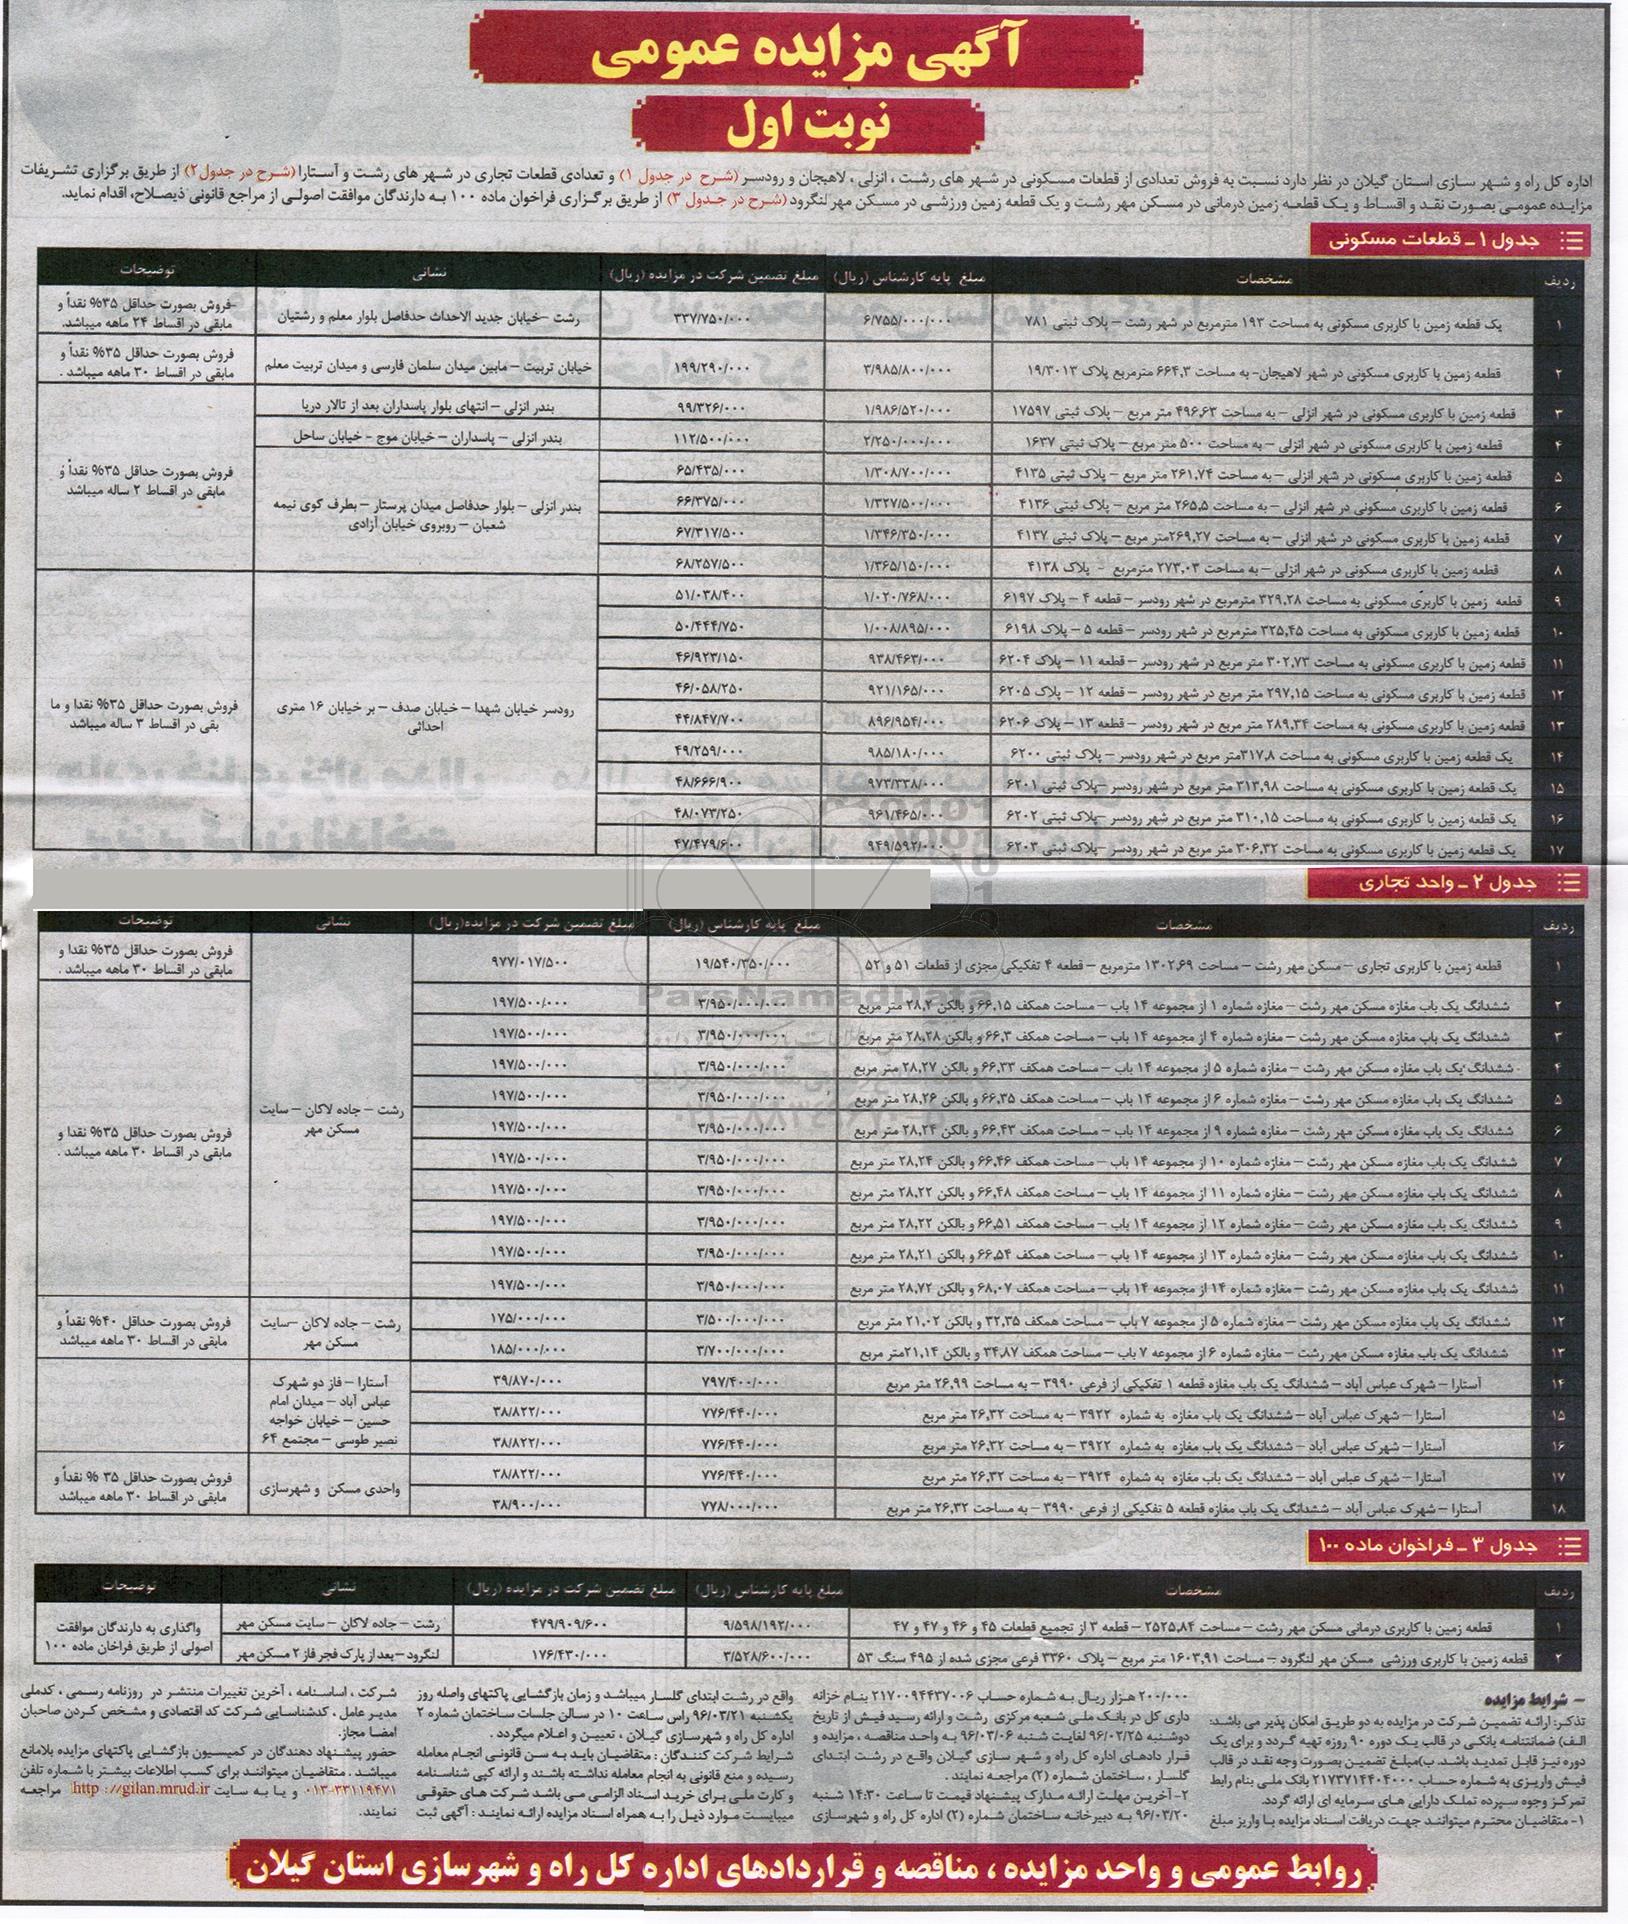 آگهی مزایده عمومی
نوبت اول
اداره کل راه و شهر سازی استان گیلان در نظر دارد نسبت به فروش تعدادی از قطعات مسکونی در شهر های رشت ، انزلی ، لاهیجان و رودسر (شرح در جدول ۱) و تعدادی قطعات تجاری در شهر های رشت و آستارا (شرح در جدول۲) از طریق برگزاری تشریفات
مزایده عمومی بصورت نقد و اقساط و یک قطعه زمین درمانی در مسکن مهر رشت و یک قطعه زمین ورزشی در مسکن مهر لنگرود (شرح در جدول ۳) از طریق برگزاری فراخوان ماده ۱۰۰ به دارندگان موافقت اصولی از مراجع قانونی ذیصلاح، اقدام نماید.
جدول ۱ ـ قطعات مسکونی
ردیف مشخصات مبلغ پایه کارشناس (ریال) مبلغ تضمین شرکت در مزایده (ریال) نشانی توضیحات
۱ یک قطعه زمین با کاربری مسکونی به مساحت ۱۹۳ مترمربع در شهر رشت – پلاک ثبتی ۷۸۱ ۶/۷۵۵/۰۰۰/۰۰۰ ۳۳۷/۷۵۰/۰۰۰ رشت –خیابان جدید الاحداث حدفاصل بلوار معلم و رشتیان فروش بصورت حداقل ۳۵% نقداً و
مابقی در اقساط ۲۴ ماهه میباشد.
۲ قطعه زمین با کاربری مسکونی در شهر لاهیجان- به مساحت ۶۶۴,۳ مترمربع پلاک ۱۹/۳۰۱۳ ۳/۹۸۵/۸۰۰/۰۰۰ ۱۹۹/۲۹۰/۰۰۰ خیابان تربیت – مابین میدان سلمان فارسی و میدان تربیت معلم فروش بصورت حداقل ۳۵% نقداً و
مابقی در اقساط ۳۰ ماهه میباشد .
۳ قطعه زمین با کاربری مسکونی در شهر انزلی – به مساحت ۴۹۶,۶۳ متر مربع – پلاک ثبتی ۱۷۵۹۷ ۱/۹۸۶/۵۲۰/۰۰۰ ۹۹/۳۲۶/۰۰۰ بندر انزلی – انتهای بلوار پاسداران بعد از تالار دریا
۴ قطعه زمین با کاربری مسکونی در شهر انزلی – به مساحت ۵۰۰ متر مربع – پلاک ثبتی ۱۶۳۷ ۲/۲۵۰/۰۰۰/۰۰۰ ۱۱۲/۵۰۰/۰۰۰ بندر انزلی – پاسداران – خیابان موج – خیابان ساحل
فروش بصورت حداقل ۳۵% نقداً و
مابقی در اقساط ۲ ساله میباشد
۵ قطعه زمین با کاربری مسکونی در شهر انزلی – به مساحت ۲۶۱,۷۴ متر مربع – پلاک ثبتی ۴۱۳۵ ۱/۳۰۸/۷۰۰/۰۰۰ ۶۵/۴۳۵/۰۰۰
۶ قطعه زمین با کاربری مسکونی در شهر انزلی – به مساحت ۲۶۵,۵ متر مربع – پلاک ثبتی ۴۱۳۶ ۱/۳۲۷/۵۰۰/۰۰۰ ۶۶/۳۷۵/۰۰۰
بندر انزلی – بلوار حدفاصل میدان پرستار – بطرف کوی نیمه
شعبان – روبروی خیابان آزادی
۷ قطعه زمین با کاربری مسکونی در شهر انزلی – به مساحت ۲۶۹,۲۷متر مربع – پلاک ثبتی ۴۱۳۷ ۱/۳۴۶/۳۵۰/۰۰۰ ۶۷/۳۱۷/۵۰۰
۸ قطعه زمین با کاربری مسکونی در شهر انزلی – به مساحت ۲۷۳,۰۳ مترمربع - پلاک ۴۱۳۸ ۱/۳۶۵/۱۵۰/۰۰۰ ۶۸/۲۵۷/۵۰۰
۹ قطعه زمین با کاربری مسکونی به مساحت ۳۲۹,۲۸ مترمربع در شهر رودسر – قطعه ۴ – پلاک ۶۱۹۷ ۱/۰۲۰/۷۶۸/۰۰۰ ۵۱/۰۳۸/۴۰۰
۱۰ قطعه زمین با کاربری مسکونی به مساحت ۳۲۵,۴۵ مترمربع در شهر رودسر – قطعه ۵ – پلاک ۶۱۹۸ ۱/۰۰۸/۸۹۵/۰۰۰ ۵۰/۴۴۴/۷۵۰
۱۱ قطعه زمین با کاربری مسکونی به مساحت ۳۰۲,۷۳ متر مربع در شهر رودسر – قطعه ۱۱ – پلاک ۶۲۰۴ ۹۳۸/۴۶۳/۰۰۰ ۴۶/۹۲۳/۱۵۰
۱۲ قطعه زمین با کاربری مسکونی به مساحت ۲۹۷,۱۵ متر مربع در شهر رودسر – قطعه ۱۲ – پلاک ۶۲۰۵ ۹۲۱/۱۶۵/۰۰۰ ۴۶/۰۵۸/۲۵۰
رودسر خیابان شهدا – خیابان صدف – بر خیابان ۱۶ متری
احداثی
فروش بصورت حداقل ۳۵% نقدا و ما
بقی در اقساط ۳ ساله میباشد
۱۳ قطعه زمین با کاربری مسکونی به مساحت ۲۸۹,۳۴ متر مربع در شهر رودسر – قطعه ۱۳ – پلاک ۶۲۰۶ ۸۹۶/۹۵۴/۰۰۰ ۴۴/۸۴۷/۷۰۰
۱۴ یک قطعه زمین با کاربری مسکونی به مساحت ۳۱۷,۸متر مربع در شهر رودسر – پلاک ثبتی ۶۲۰۰ ۹۸۵/۱۸۰/۰۰۰ ۴۹/۲۵۹/۰۰۰
۱۵ یک قطعه زمین با کاربری مسکونی به مساحت ۳۱۳,۹۸ متر مربع در شهر رودسر –پلاک ثبتی ۶۲۰۱ ۹۷۳/۳۳۸/۰۰۰ ۴۸/۶۶۶/۹۰۰
۱۶ یک قطعه زمین با کاربری مسکونی به مساحت ۳۱۰,۱۵ متر مربع در شهر رودسر –پلاک ثبتی ۶۲۰۲ ۹۶۱/۴۶۵/۰۰۰ ۴۸/۰۷۳/۲۵۰
۱۷ یک قطعه زمین با کاربری مسکونی به مساحت ۳۰۶,۳۲ متر مربع در شهر رودسر –پلاک ثبتی ۶۲۰۳ ۹۴۹/۵۹۲/۰۰۰ ۴۷/۴۷۹/۶۰۰
جدول ۲ ـ واحد تجاری
ردیف مشخصات مبلغ پایه کارشناس (ریال) مبلغ تضمین شرکت در مزایده(ریال) نشانی توضیحات
۱ قطعه زمین با کاربری تجاری – مسکن مهر رشت – مساحت ۱۳۰۲,۶۹ مترمربع – قطعه ۴ تفکیکی مجزی از قطعات ۵۱ و ۵۲ ۱۹/۵۴۰/۳۵۰/۰۰۰ ۹۷۷/۰۱۷/۵۰۰ فروش بصورت حداقل ۳۵% نقدا و
مابقی در اقساط ۳۰ ماهه میباشد .
۲ ششدانگ یک باب مغازه مسکن مهر رشت – مغازه شماره ۱ از مجموعه ۱۴ باب – مساحت همکف ۶۶,۱۵ و بالکن ۲۸,۲۰ متر مربع ۳/۹۵۰/۰۰۰/۰۰۰ ۱۹۷/۵۰۰/۰۰۰
۳ ششدانگ یک باب مغازه مسکن مهر رشت – مغازه شماره ۴ از مجموعه ۱۴ باب – مساحت همکف ۶۶,۳ و بالکن ۲۸,۲۸ متر مربع ۳/۹۵۰/۰۰۰/۰۰۰ ۱۹۷/۵۰۰/۰۰۰
۴ ششدانگ یک باب مغازه مسکن مهر رشت – مغازه شماره ۵ از مجموعه ۱۴ باب – مساحت همکف ۶۶,۳۳ و بالکن ۲۸,۲۷ متر مربع ۳/۹۵۰/۰۰۰/۰۰۰ ۱۹۷/۵۰۰/۰۰۰
۵ ششدانگ یک باب مغازه مسکن مهر رشت – مغازه شماره ۶ از مجموعه ۱۴ باب – مساحت همکف ۶۶,۳۵ و بالکن ۲۸,۲۶ متر مربع ۳/۹۵۰/۰۰۰/۰۰۰ ۱۹۷/۵۰۰/۰۰۰
رشت – جاده لاکان – سایت
مسکن مهر
فروش بصورت حداقل ۳۵% نقدا و
مابقی در اقساط ۳۰ ماهه میباشد .
۶ ششدانگ یک باب مغازه مسکن مهر رشت – مغازه شماره ۹ از مجموعه ۱۴ باب – مساحت همکف ۶۶,۴۳ و بالکن ۲۸,۲۴ متر مربع ۳/۹۵۰/۰۰۰/۰۰۰ ۱۹۷/۵۰۰/۰۰۰
۷ ششدانگ یک باب مغازه مسکن مهر رشت – مغازه شماره ۱۰ از مجموعه ۱۴ باب – مساحت همکف ۶۶,۴۶ و بالکن ۲۸,۲۴ متر مربع ۳/۹۵۰/۰۰۰/۰۰۰ ۱۹۷/۵۰۰/۰۰۰
۸ ششدانگ یک باب مغازه مسکن مهر رشت – مغازه شماره ۱۱ از مجموعه ۱۴ باب – مساحت همکف ۶۶,۴۸ و بالکن ۲۸,۲۲ متر مربع ۳/۹۵۰/۰۰۰/۰۰۰ ۱۹۷/۵۰۰/۰۰۰
۹ ششدانگ یک باب مغازه مسکن مهر رشت – مغازه شماره ۱۲ از مجموعه ۱۴ باب – مساحت همکف ۶۶,۵۱ و بالکن ۲۸,۲۲ متر مربع ۳/۹۵۰/۰۰۰/۰۰۰ ۱۹۷/۵۰۰/۰۰۰
۱۰ ششدانگ یک باب مغازه مسکن مهر رشت – مغازه شماره ۱۳ از مجموعه ۱۴ باب – مساحت همکف ۶۶,۵۴ و بالکن ۲۸,۲۱ متر مربع ۳/۹۵۰/۰۰۰/۰۰۰ ۱۹۷/۵۰۰/۰۰۰
۱۱ ششدانگ یک باب مغازه مسکن مهر رشت – مغازه شماره ۱۴ از مجموعه ۱۴ باب – مساحت همکف ۶۸,۰۷ و بالکن ۲۸,۷۲ متر مربع ۳/۹۵۰/۰۰۰/۰۰۰ ۱۹۷/۵۰۰/۰۰۰
۱۲ ششدانگ یک باب مغازه مسکن مهر رشت – مغازه شماره ۵ از مجموعه ۷ باب – مساحت همکف ۳۲,۳۵ و بالکن ۲۱,۰۲ متر مربع ۳/۵۰۰/۰۰۰/۰۰۰ ۱۷۵/۰۰۰/۰۰۰
رشت – جاده لاکان –سایت
مسکن مهر
فروش بصورت حداقل ۴۰% نقداً و
مابقی در اقساط ۳۰ ماهه میباشد
۱۳ ششدانگ یک باب مغازه مسکن مهر رشت – مغازه شماره ۶ از مجموعه ۷ باب – مساحت همکف ۳۴,۸۷ و بالکن ۲۱,۱۴متر مربع ۳/۷۰۰/۰۰۰/۰۰۰ ۱۸۵/۰۰۰/۰۰۰
۱۴ آستارا – شهرک عباس آباد – ششدانگ یک باب مغازه قطعه ۱ تفکیکی از فرعی ۳۹۹۰ – به مساحت ۲۶,۹۹ متر مربع ۷۹۷/۴۰۰/۰۰۰ ۳۹/۸۷۰/۰۰۰
۱۵ آستارا – شهرک عباس آباد – ششدانگ یک باب مغازه به شماره ۳۹۲۲ – به مساحت ۲۶,۳۲ متر مربع ۷۷۶/۴۴۰/۰۰۰ ۳۸/۸۲۲/۰۰۰
آستارا – فاز دو شهرک
عباس آباد – میدان امام
حسین – خیابان خواجه
نصیر طوسی – مجتمع ۶۴
۱۶ آستارا – شهرک عباس آباد – ششدانگ یک باب مغازه به شماره ۳۹۲۲ – به مساحت ۲۶,۳۲ متر مربع ۷۷۶/۴۴۰/۰۰۰ ۳۸/۸۲۲/۰۰۰
۱۷ آستارا – شهرک عباس آباد – ششدانگ یک باب مغازه به شماره ۳۹۲۴ – به مساحت ۲۶,۳۲ متر مربع ۷۷۶/۴۴۰/۰۰۰ ۳۸/۸۲۲/۰۰۰
واحدی مسکن و شهرسازی
فروش بصورت حداقل ۳۵ % نقداً و
مابقی در اقساط ۳۰ ماهه میباشد
۱۸ آستارا – شهرک عباس آباد – ششدانگ یک باب مغازه قطعه ۵ تفکیکی از فرعی ۳۹۹۰ – به مساحت ۲۶,۳۲ متر مربع ۷۷۸/۰۰۰/۰۰۰ ۳۸/۹۰۰/۰۰۰
جدول ۳ ـ فراخوان ماده ۱۰۰
ردیف مشخصات مبلغ پایه کارشناس (ریال) مبلغ تضمین شرکت در مزایده (ریال) نشانی توضیحات
۱ قطعه زمین با کاربری درمانی مسکن مهر رشت – مساحت ۲۵۲۵,۸۴ – قطعه ۳ از تجمیع قطعات ۴۵ و ۴۶ و ۴۷ و ۴۷ ۹/۵۹۸/۱۹۲/۰۰۰ ۴۷۹/۹۰۹/۶۰۰ رشت – جاده لاکان – سایت مسکن مهر
۲ قطعه زمین با کاربری ورزشی مسکن مهر لنگرود – مساحت ۱۶۰۳,۹۱ متر مربع – پلاک ۳۳۶۰ فرعی مجزی شده از ۴۹۵ سنگ ۵۳ ۳/۵۲۸/۶۰۰/۰۰۰ ۱۷۶/۴۳۰/۰۰۰ لنگرود –بعد از پارک فجر فاز ۲ مسکن مهر
واگذاری به دارندگان موافقت
اصولی از طریق فراخان ماده ۱۰۰
– شرایط مزایده
تذکر: ارائه تضمین شرکت در مزایده به دو طریق امکان پذیر می باشد:
الف) ضمانتنامه بانکی در قالب یک دوره ۹۰ روزه تهیه گردد و برای یک
دوره نیز قابل تمدید باشد. ب)مبلغ تضمین بصورت وجه نقد در قالب
فیش واریزی به شماره حساب ۲۱۷۳۷۱۴۴۰۴۰۰۰ بانک ملی بنام رابط
تمرکز وجوه سپرده تملک دارایی های سرمایه ای ارائه گردد.
۱- متقاضیان محترم میتوانند جهت دریافت اسناد مزایده با واریز مبلغ
۲۰۰/۰۰۰ هزار ریال به شماره حساب ۲۱۷۰۰۹۴۴۳۷۰۰۶ بنام خزانه
داری کل در بانک ملی شعبه مرکزی رشت و ارائه رسید فیش از تاریخ
دوشنبه ۹۶/۰۲/۲۵ لغایت شنبه ۹۶/۰۳/۰۶ به واحد مناقصه ، مزایده و
قرار دادهای اداره کل راه و شهر سازی گیلان واقع در رشت ابتدای
گلسار ، ساختمان شماره (۲) مراجعه نمایند .
۲- آخرین مهلت ارائه مدارک پیشنهاد قیمت تا ساعت ۱۴:۳۰ شنبه
۹۶/۰۳/۲۰ به دبیرخانه ساختمان شماره (۲) اداره کل راه و شهرسازی
واقع در رشت ابتدای گلسار میباشد و زمان بازگشایی پاکتهای واصله روز
یکشنبه ۹۶/۰۳/۲۱ راس ساعت ۱۰ در سالن جلسات ساختمان شماره ۲
اداره کل راه و شهرسازی گیلان ، تعیین و اعلام میگردد .
شرایط شرکت کنندگان : متقاضیان باید به سن قانونی انجام معامله
رسیده و منع قانونی به انجام معامله نداشته باشند و ارائه کپی شناسنامه
و کارت ملی برای خرید اسناد الزامی می باشد شرکت های حقوقی
میبایست موارد ذیل را به همراه اسناد مزایده ارائه نمایند : آگهی ثبت
شرکت ، اساسنامه ، آخرین تغییرات منتشر در روزنامه رسمی ، کدملی
مدیر عامل ، کدشناسایی شرکت کد اقتصادی و مشخص کردن صاحبان
امضا مجاز.
حضور پیشنهاد دهندگان در کمیسیون بازگشایی پاکتهای مزایده بلامانع
میباشد . متقاضیان میتوانند برای کسب اطلاعات بیشتر با شماره تلفن
۰۱۳-۳۳۱۱۹۴۷۱ و یا به سایت http://gilan.mrud.ir مراجعه
نمایند.
روابط عمومی و واحد مزایده ، مناقصه و قراردادهای اداره کل راه و شهرسازی استان گیلان
ParsNamadData